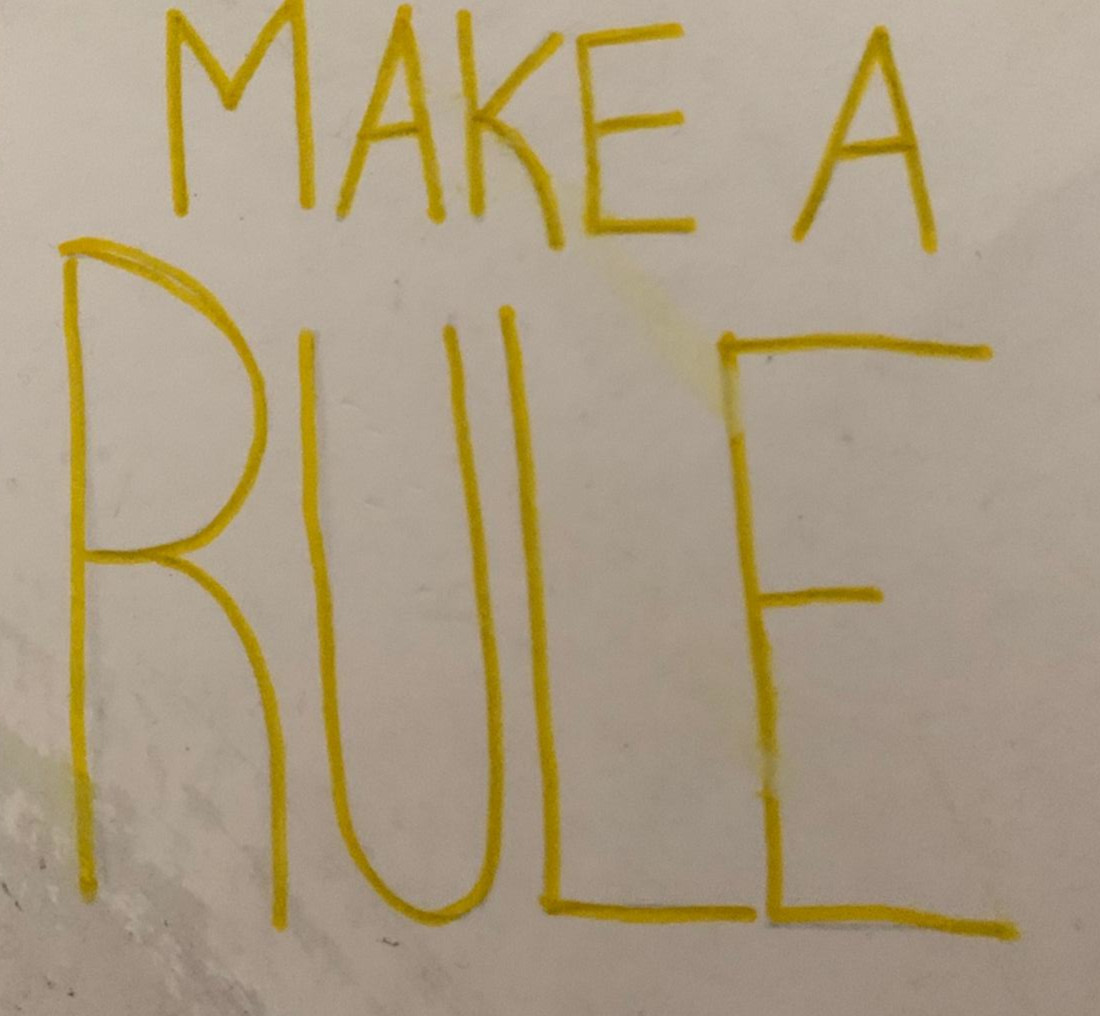 MAKE A
RULE